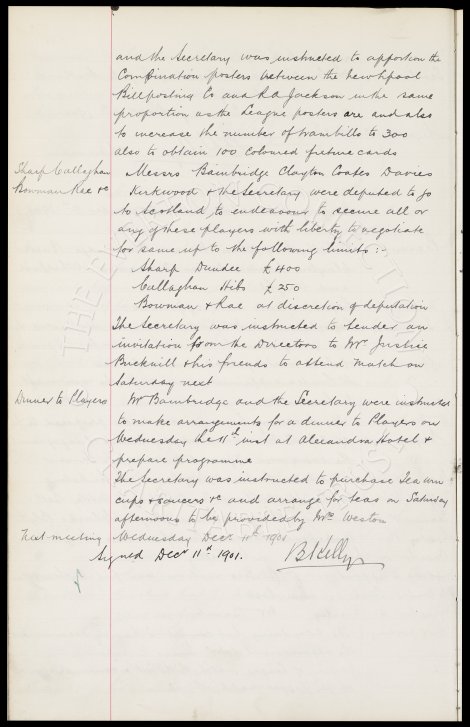 and the Secretary was instructed to apportion the
Combination posters between the New Lpool
Billposting Co and R A Jackson in the same
proportion as the League posters are and also
to increase the number of trambills to 300
also to obtain 100 coloured fixture cards
Sharp Callaghan
Bowman Rae &c
Messrs Bainbridge Clayton Coates Davies
Kirkwood & the Secretary were deputed to go
to Scotland to endeavour to secure all or
any of these players with liberty to negotiate
for same up to the following limits:-
Sharp Dundee £400
Callaghan Hibs £250
Bowman & Rae at discretion of deputation
The Secretary was instructed to tender an
invitation from the Directors to Mr Justice
Bucknill & his friends to attend match on
Saturday next
Dinner to Players
Mr Bainbridge and the Secretary were instructed
to make arrangements for a dinner to Players on
Wednesday the 11th inst at Alexandra Hotel &
prepare programme
The Secretary was instructed to purchase Tea urn
cups & saucers &c and arrange for teas on Saturday
afternoons to be provided by Mrs Weston
Next meeting
Wednesday Decr 11th 1901
Signed Decr 11th 1901.
B Kelly